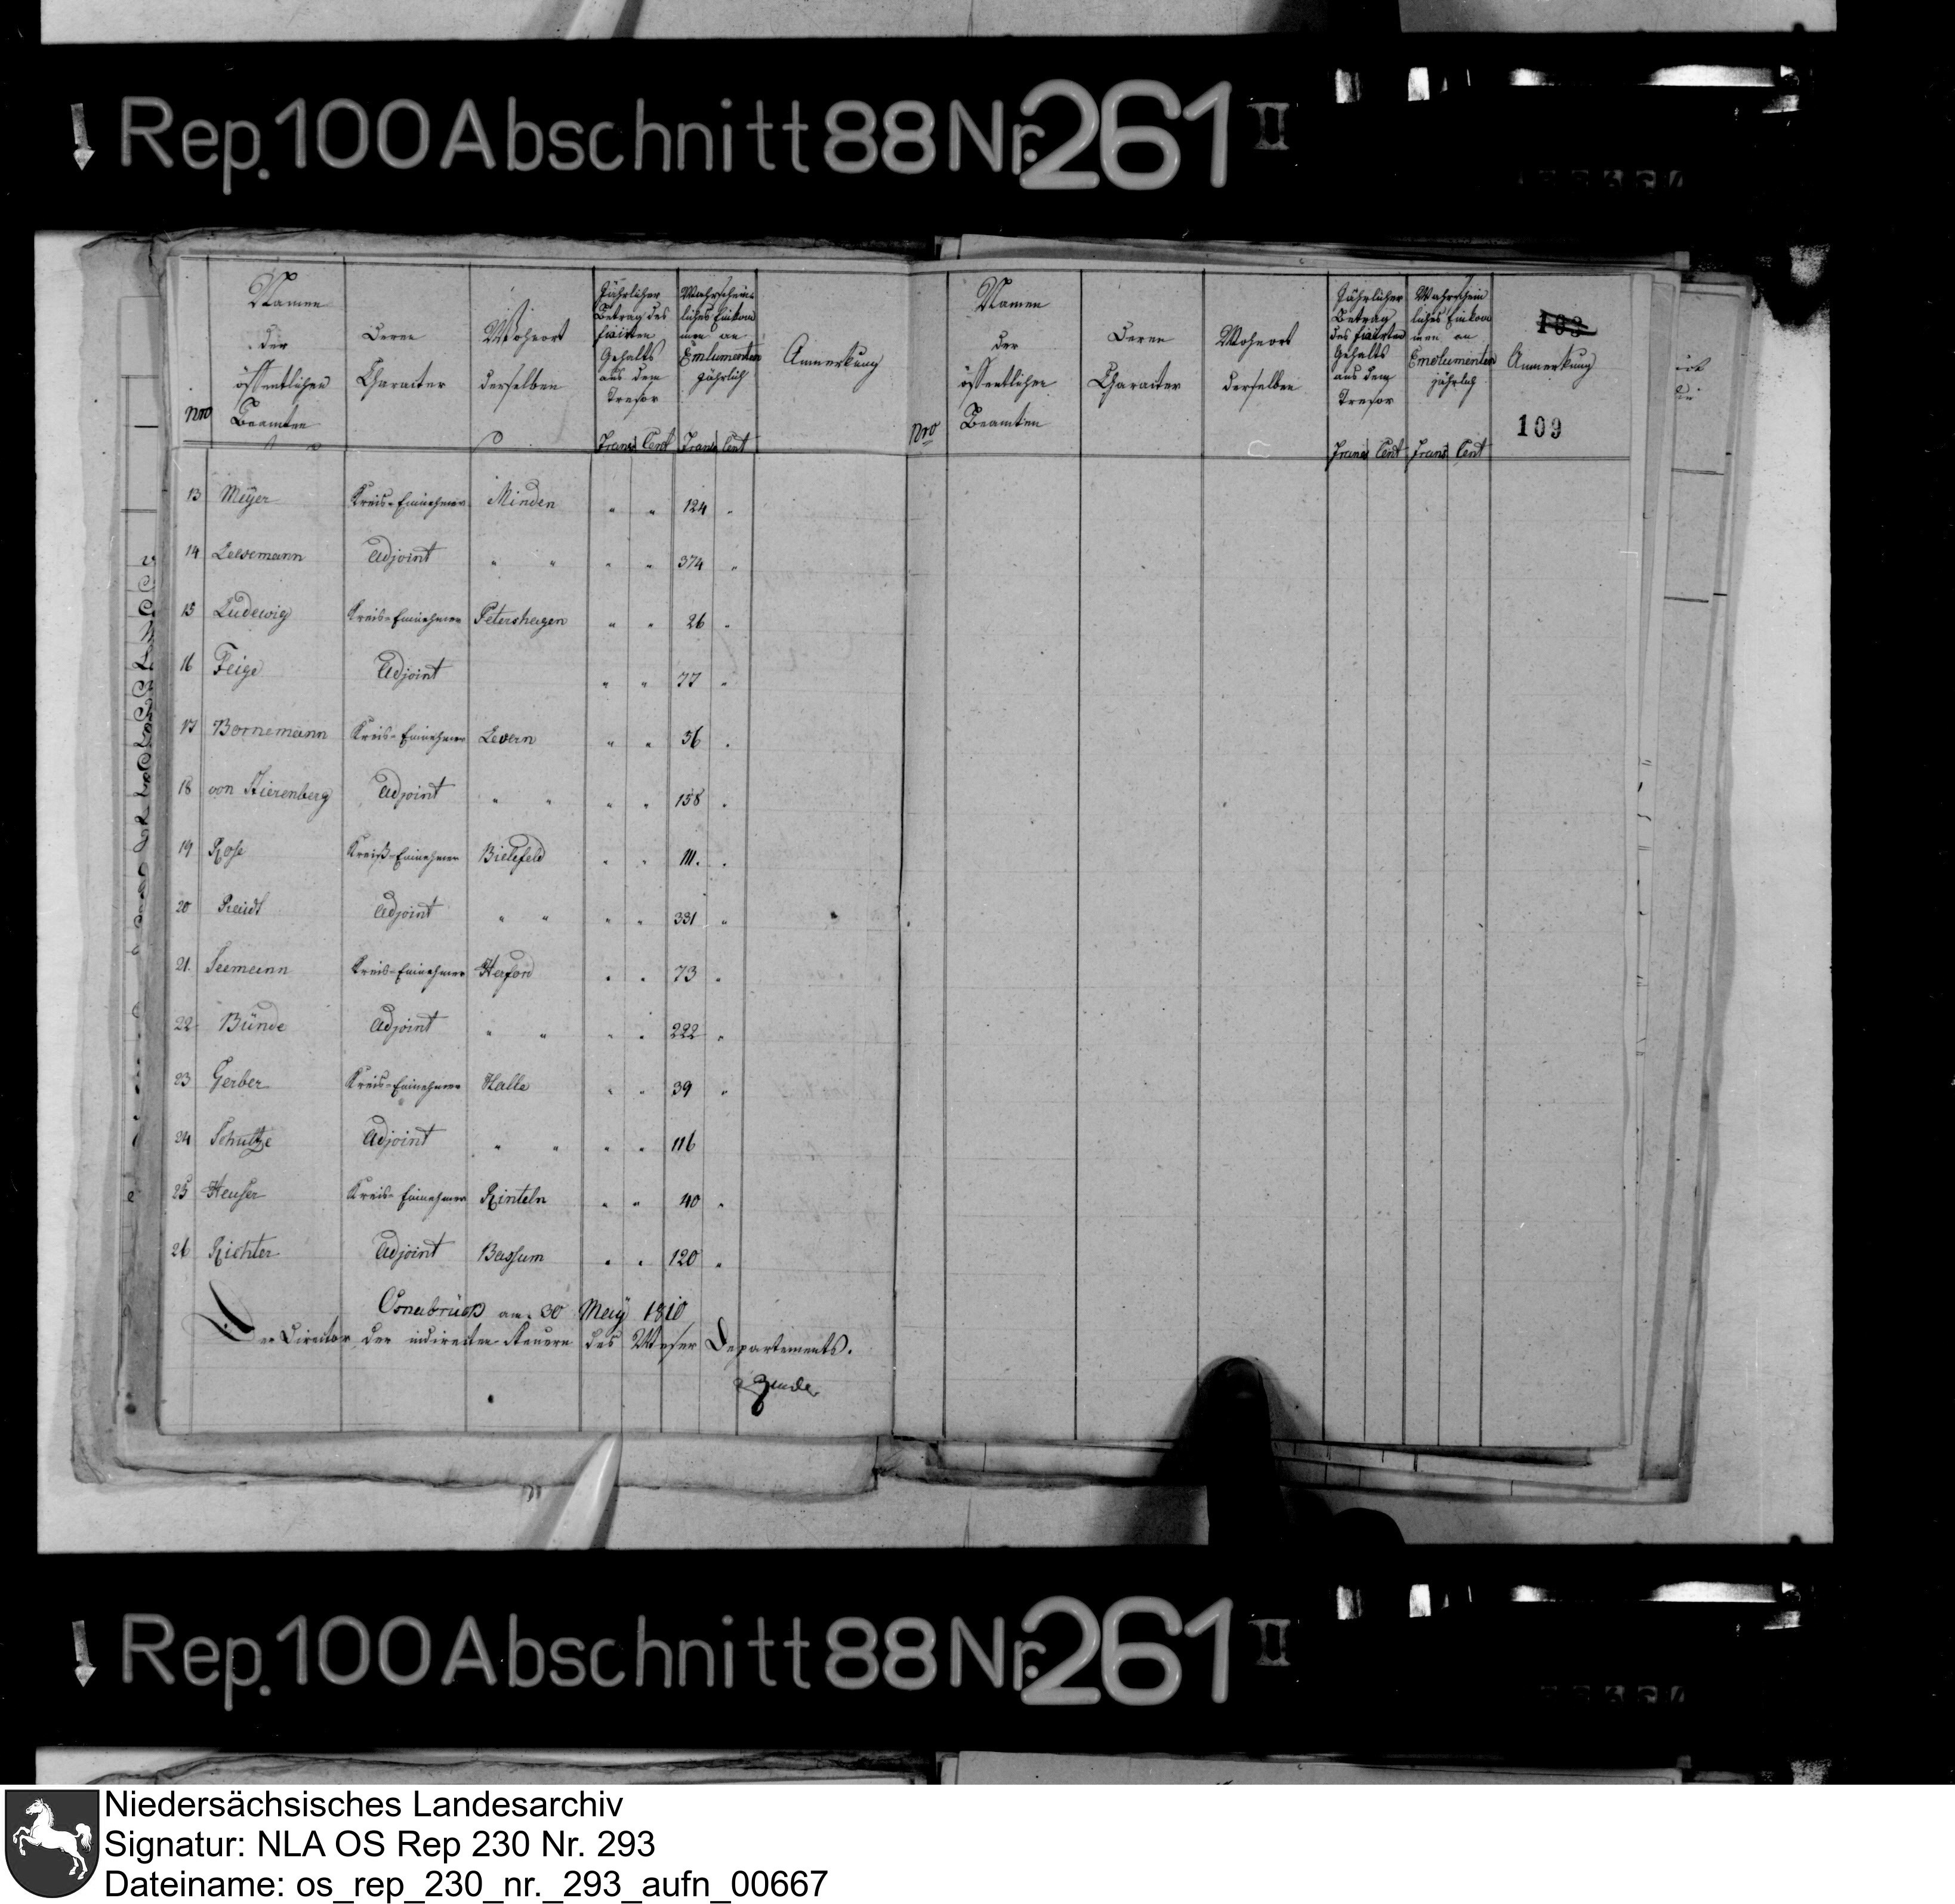 Rep. 100 Abschnitt 88 Nr. 261 II
Nro
Namen
der
öffentlichen
Beamten
Deren
Character
Wohnort
derselben
Jährlicher
Betrag des
fixirten
Gehalts
aus dem
Tresor
Francs Cent
Wahrschein-
liches Einkom
men an
Emlumenten
jährlich
Francs Cent
Anmerkung
13 Meÿer Kreis-Einnehmer Minden " " 124 "
14 Leesemann Adjoint " " " " 374 "
15 Ludewig Kreis-Einnehmer Petershagen " " 26 "
16 Feige Adjoint " " 77 "
17 Bornemann Kreis-Einnehmer Levern " " 56 "
18 von Adjoint " " " " 158 "
19 Rose Kreiß-Einnehmer Bielefeld " " 111. "
20 Adjoint " " " " 331 "
21. Seemann Kreis-Einnehmer Herford " " 73 "
22 Bünde Adjoint " " " " 222 "
23 Gerber Kreis-Einnehmer Halle " " 39 "
24 Schultze Adjoint " " " " 116
25 Heuser Kreis-Einnehmer Rinteln " " 40 "
26 Richter Adjoint Bassum " " 120 "
Osnabrück am 30 Maÿ 1810
Der Director der indirecten Steuern des Weser Departements.
Nro
Namen
der
öffentlichen
Beamten
Deren
Character
Wohnort
derselben
Jährlicher
Betrag
des fixirten
Gehalts
aus dem
Tresor
Francs Cent
Wahrschein
liches Einkom
men an
Emolumenten
jährlich
Francs Cent
103
Anmerkung
109
Rep. 100 Abschnitt 88 Nr. 261 II
Niedersächsisches Landesarchiv
Signatur: NLA OS Rep 230 Nr. 293
Dateiname: os_rep_230_nr._293_aufn_00667